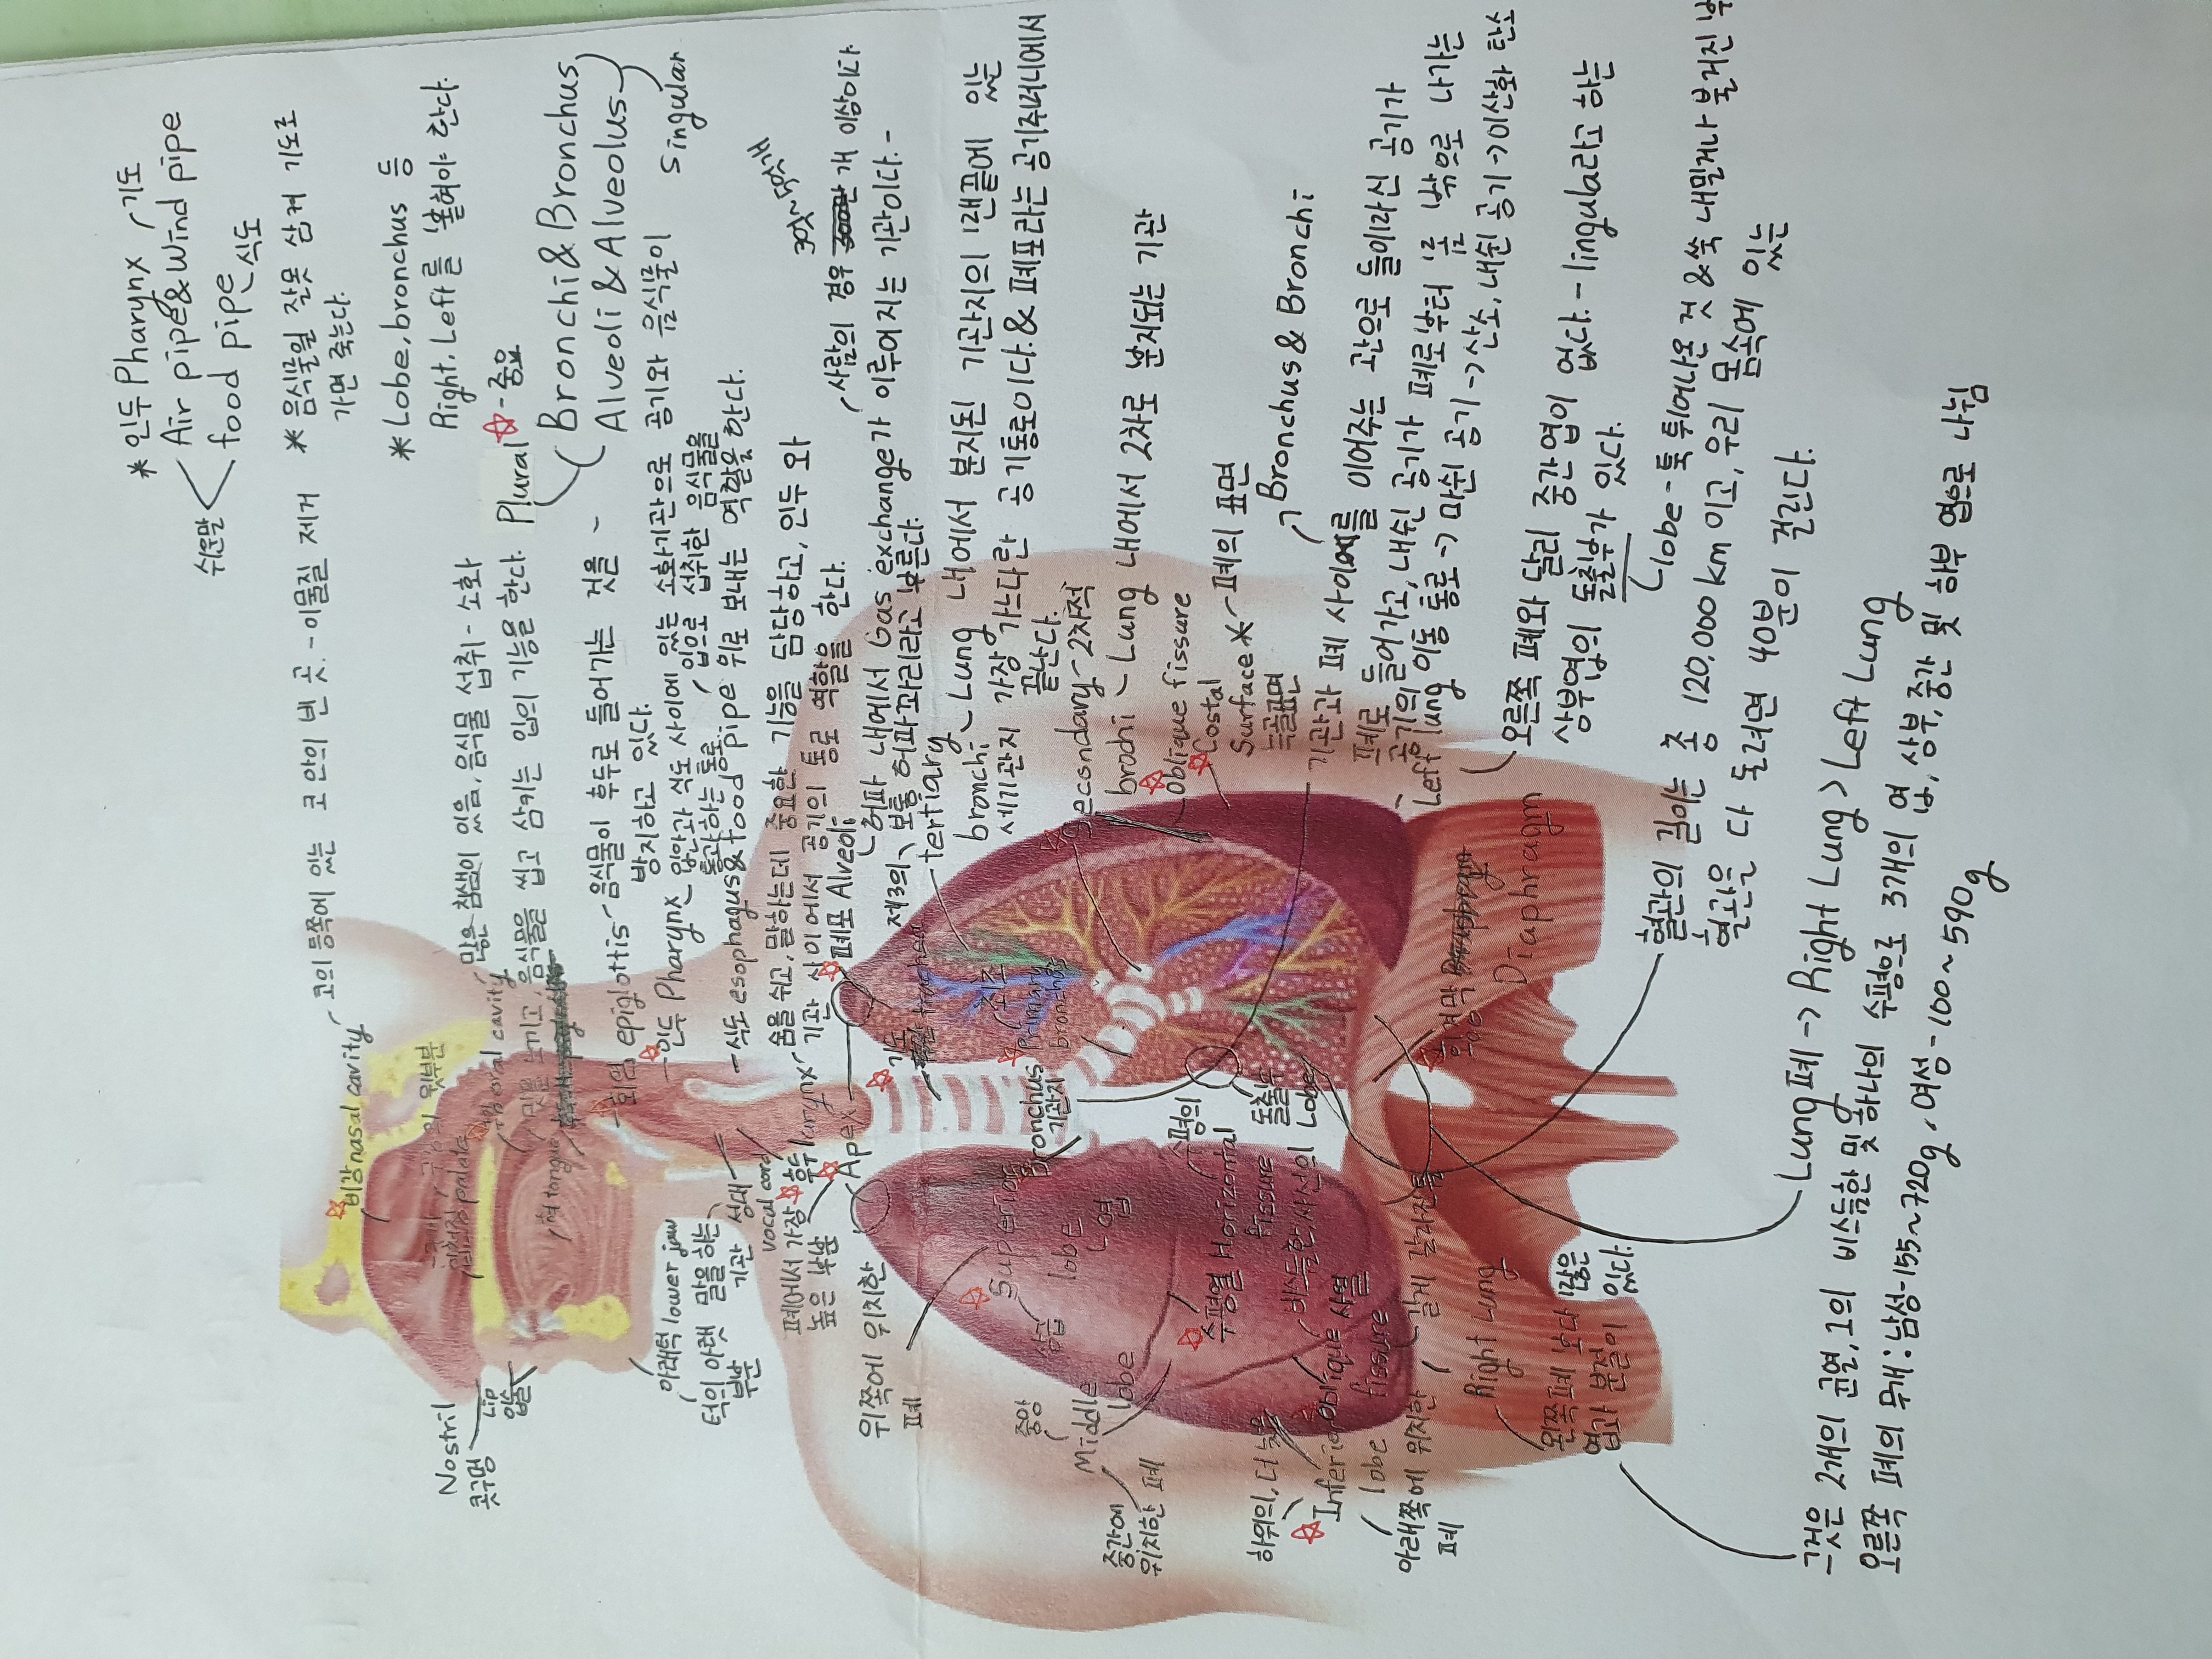 *인두 Pharynx 기도
Air pipe & Wind pipe
food pipe 식도
쉬운말
* 음식물일 잘못 삼켜 기도로
가면 죽는다.
* Lobe, bronchus 등
Right, Left를 붙혀야 한다.
Plural ☆-중요
Bronchi & Bronchus
Alveoli & Alveolus
singular
비강 nasal cavity
코의 등쪽에 있는 코 안의 빈 곳. - 이물질 제거
oral cavity
많은 침샘이 있음, 음식물 섭취 - 소화
맛을 느끼고, 음식물을 씹고 삼키는 입의 기능을 한다.
혀 tongue
회염 epiglottis
음식물이 후두로 들어가는 것을
방지하고 있다.
인두 Pharynx
입안과 식도 사이에 있는 소화기관으로 공기와 음식물이
통과하는 통로
입으로 섭취한 음식물을
식도 esophagus & food pipe 위로 보내는 역할을 한다.
후두 larynx
숨을 쉬고, 말하는데 중요한 기능을 담당하고, 인두 와
기관 사이에서 공기의 통로 역할을 한다.
폐포 Alveoli
사람의 경우 개 이상이다
허파 내에서 Gas exchange가 이루어지는 기관이다. -
보통 허파꽈리라고 부른다.
제3의
tertiary
bronchi
Lung 내에서 분지된 기관지의 맨끝에 있는
세기관지 가장 가느다란 공기통로이다. & 폐포라는 공기주머니에서
끝난다.
secondary - 2차적
brochi - Lung 내에서 2차로 분지되는 기관
oblique fissure
Costal
Surface * 폐의 표면
늑골표면
Bronchus & Bronchi
기관과 폐 사이를 이어주는 관으로 들이마신 공기가
폐로 들어가고, 내쉰 공기가 폐로부터 몸 밖으로 나가는
공기의 이동 통로 → 마쉰 공기 → 산소, 내쉰 공기 → 이산화 탄소
Left lung
오른쪽 폐와 달리 중간엽이 없다. - lingubla라고 하는
상부엽의 돌출부가 있다.
lobe - 툭 튀어나온 것 & 쑥 내밀거나 불거진
혈관의 길이는 총 120,000km 이고, 우리 몸속에 있는
혈관은 다 도려면 40분이 걸린다.
Lung 폐 → Right Lung > Left Lung
그것은 2개의 균열, 1의 비스듬한 및 하나의 수평으로 3개의 엽, 상부, 중간 및 하부 엽으로 나뉨
오른쪽 폐의 무개 : 남성 - 155~720g, 여성 - 100~590g
Nostril
콧구멍
Lip
입술
아래턱 lower jaw
턱의 아랫
부분
말을 하는
기관
성대
vocal cord
폐에서 가장
높은 부분
Apex
기도
최초
Primary
bronchus
Bronchus
기관지
위쪽에 위치한
폐
Superior
lobe
상급
엽
중앙
Middle
lobe
중간에
위치한 폐
수평의
수평열 Horizontal
fissure
돌출부
Lobe
비스듬한 사선의
Oblique 사열
fissure
길게 갈라진 틈
하위의, 더 낮은
Inferior
lobe
아래쪽에 위치한
폐
Right Lung
왼쪽폐 보다 많은
엽과 분절이 있다.
횡격막
Diaphragm